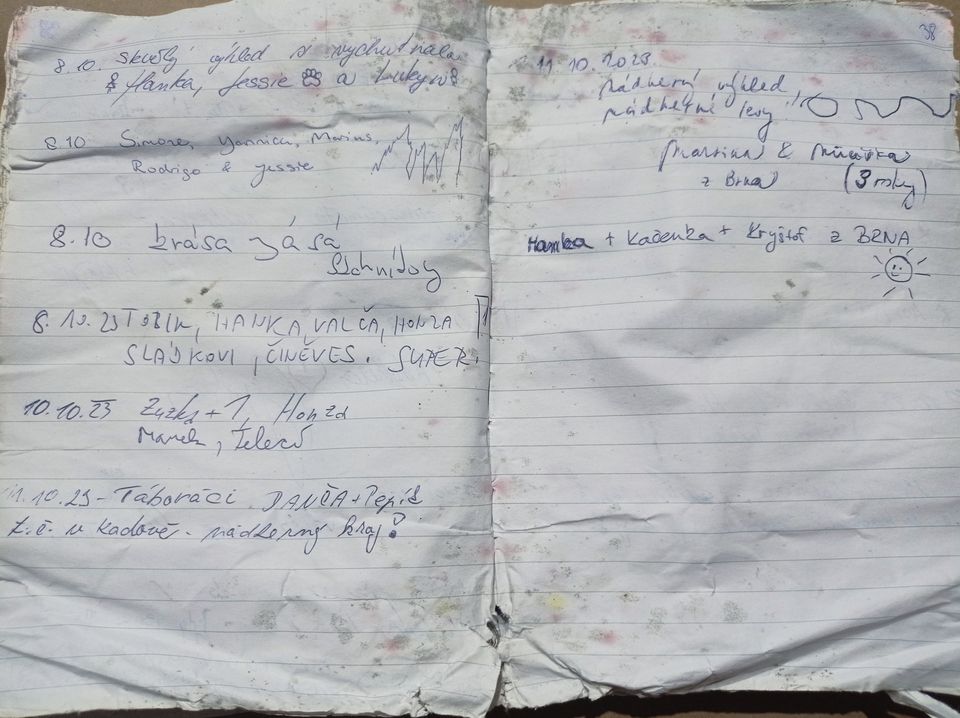 8.10. skvělý výhled si vychutnala
Hanka, Jessie a
8.10 Simone, Yannick, Marius,
Rodrigo & Jessie
8.10 krása
8.10.23 HANKA, VALČA, HONZA
SLÁDKOVI, ČINĚVES. SUPER.
10.10.23 Zuzka + 1, Honza
Marek,
11.10.23 - Táboráci DANČA + Pepík
t.č. v Kadově - nádherný kraj!
38
11.10.2023.
nádherný výhled
nádherné lesy!!
Martina &
z Brna (3 roky)
Hanka + Kačenka + Kryštof z BRNA